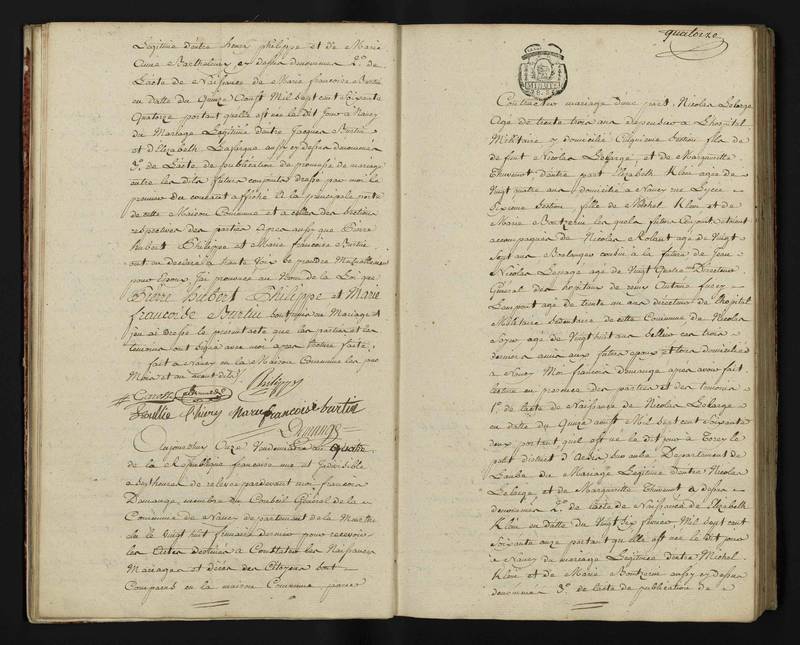 Légitime d'entre henry philippe et de Marie
Anne Barthelemy, cy dessus denommés 2.° de
Lacte de Naissance de Marie francoise Burtin
en datte du Quinze Aoust Mil Sept cent Soixante
Quatorze portant quelle est née le dit Jour à Nancy
du Mariage Legitime d'entre Jacques Burtin
et d'Elizabeth Lafarque aussy cy dessus denommés
3.° de Lacte de publication de promesse de mariage
entre les dits futurs conjoints dressé par moi le
premier du courant affiché à la principale porte
de cette Maison Commune et a celles des Sections
respectives des parties apres aussy que Pierre
hubert Philippe et Marie francoise Burtin
ont eu declaré a haute Voix se prendre Mutuellement
pour Epoux. J'ai prononcé au Nom de la Loi que
Pierre hubert Philippe et Marie
francoise Burtin sont unis en Mariage et
jen ai dressé le present acte que les parties et les
temoins ont signé avec moi apres lecture faite,
fait à Nancy en la Maison Commune les jour
Mois et an avant dits
Philippy
Thiery Marie francoise burtin
Aujourdhui Onze Vendemiaire an quatre
de la Republique francaise une et Indivisible
a sept heures de relevée pardevant moi francois
Domange, membre du Conseil Général de la
Commune de Nancy departement de la Meurthe
elu le Vingt huit frimaire dernier pour recevoir
les Actes destinés a Constater les Naissances
Mariages et décès des Citoyens Sont
Comparus en la maison Commune, pour
quatorze
Contracter mariage d'une part, Nicolas Lelarge
Agé de trente trois ans depensier a Lhopital
Militaire y domicilié Cinquieme Section fils de
defunt Nicolas Lelarge, et de Marguerite
Thuvenot d'autre part Elizabeth Klein agée de
Vingt quatre ans domiciliée a Nancy rue
Sixieme Section fille de Michel Klein et de
Marie les quels futurs Conjoints etaient
accompagnés de Nicolas Roland agé de Vingt
Sept ans Boulanger cousin a la future de Jean
Nicolas Lepage agé de Vingt Quatre ans Directeur
Général des hopitaux de Antoine
agé de trente un ans directeur de l'hopital
Militaire Sedentaire de cette Commune de Nicolas
agé de Vingt huit ans sellier ces trois
derniers amis aux futurs epoux et tous domiciliés
a Nancy Moi francois Domange apres avoir fait
lecture en presence des parties et des temoins
1.° de Lacte de Naissance de Nicolas Lelarge
en datte du Quinze aoust Mil Sept cent Soixante
deux portant quil est né le dit jour à Torcy le
petit district d'Arcis sur aube Departement de
Laube du Mariage Legitime d'entre Nicolas
Lelarge et de Marguerite Thuvenot cy dessus
denommés 2.° de lacte de Naissance de Elizabeth
Klein en datte du Vingt Six fevrier Mil Sept cent
Soixante onze portant qu'elle est née le dit jour
à Nancy du mariage Legitime d'entre Michel
Klein et de Marie aussy cy Dessus
denommés 3.° de lacte de publication de